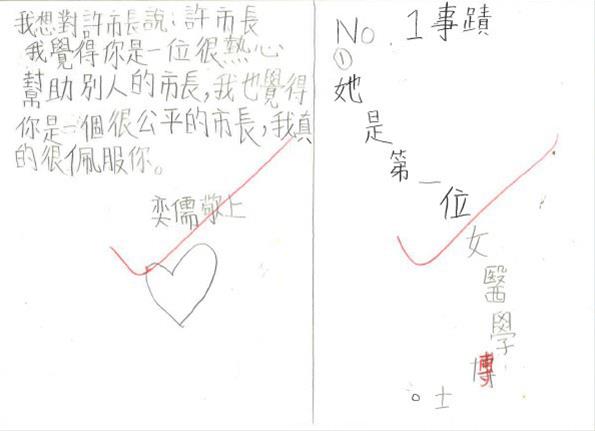 我想對許市長說：許市長
我覺得你是一位很熱心
幫助別人的市長，我也覺得
你是一個很公平的市長，我真
的很佩服你。
奕儒敬上
No.1事蹟
①
她是第一位女醫學博士。